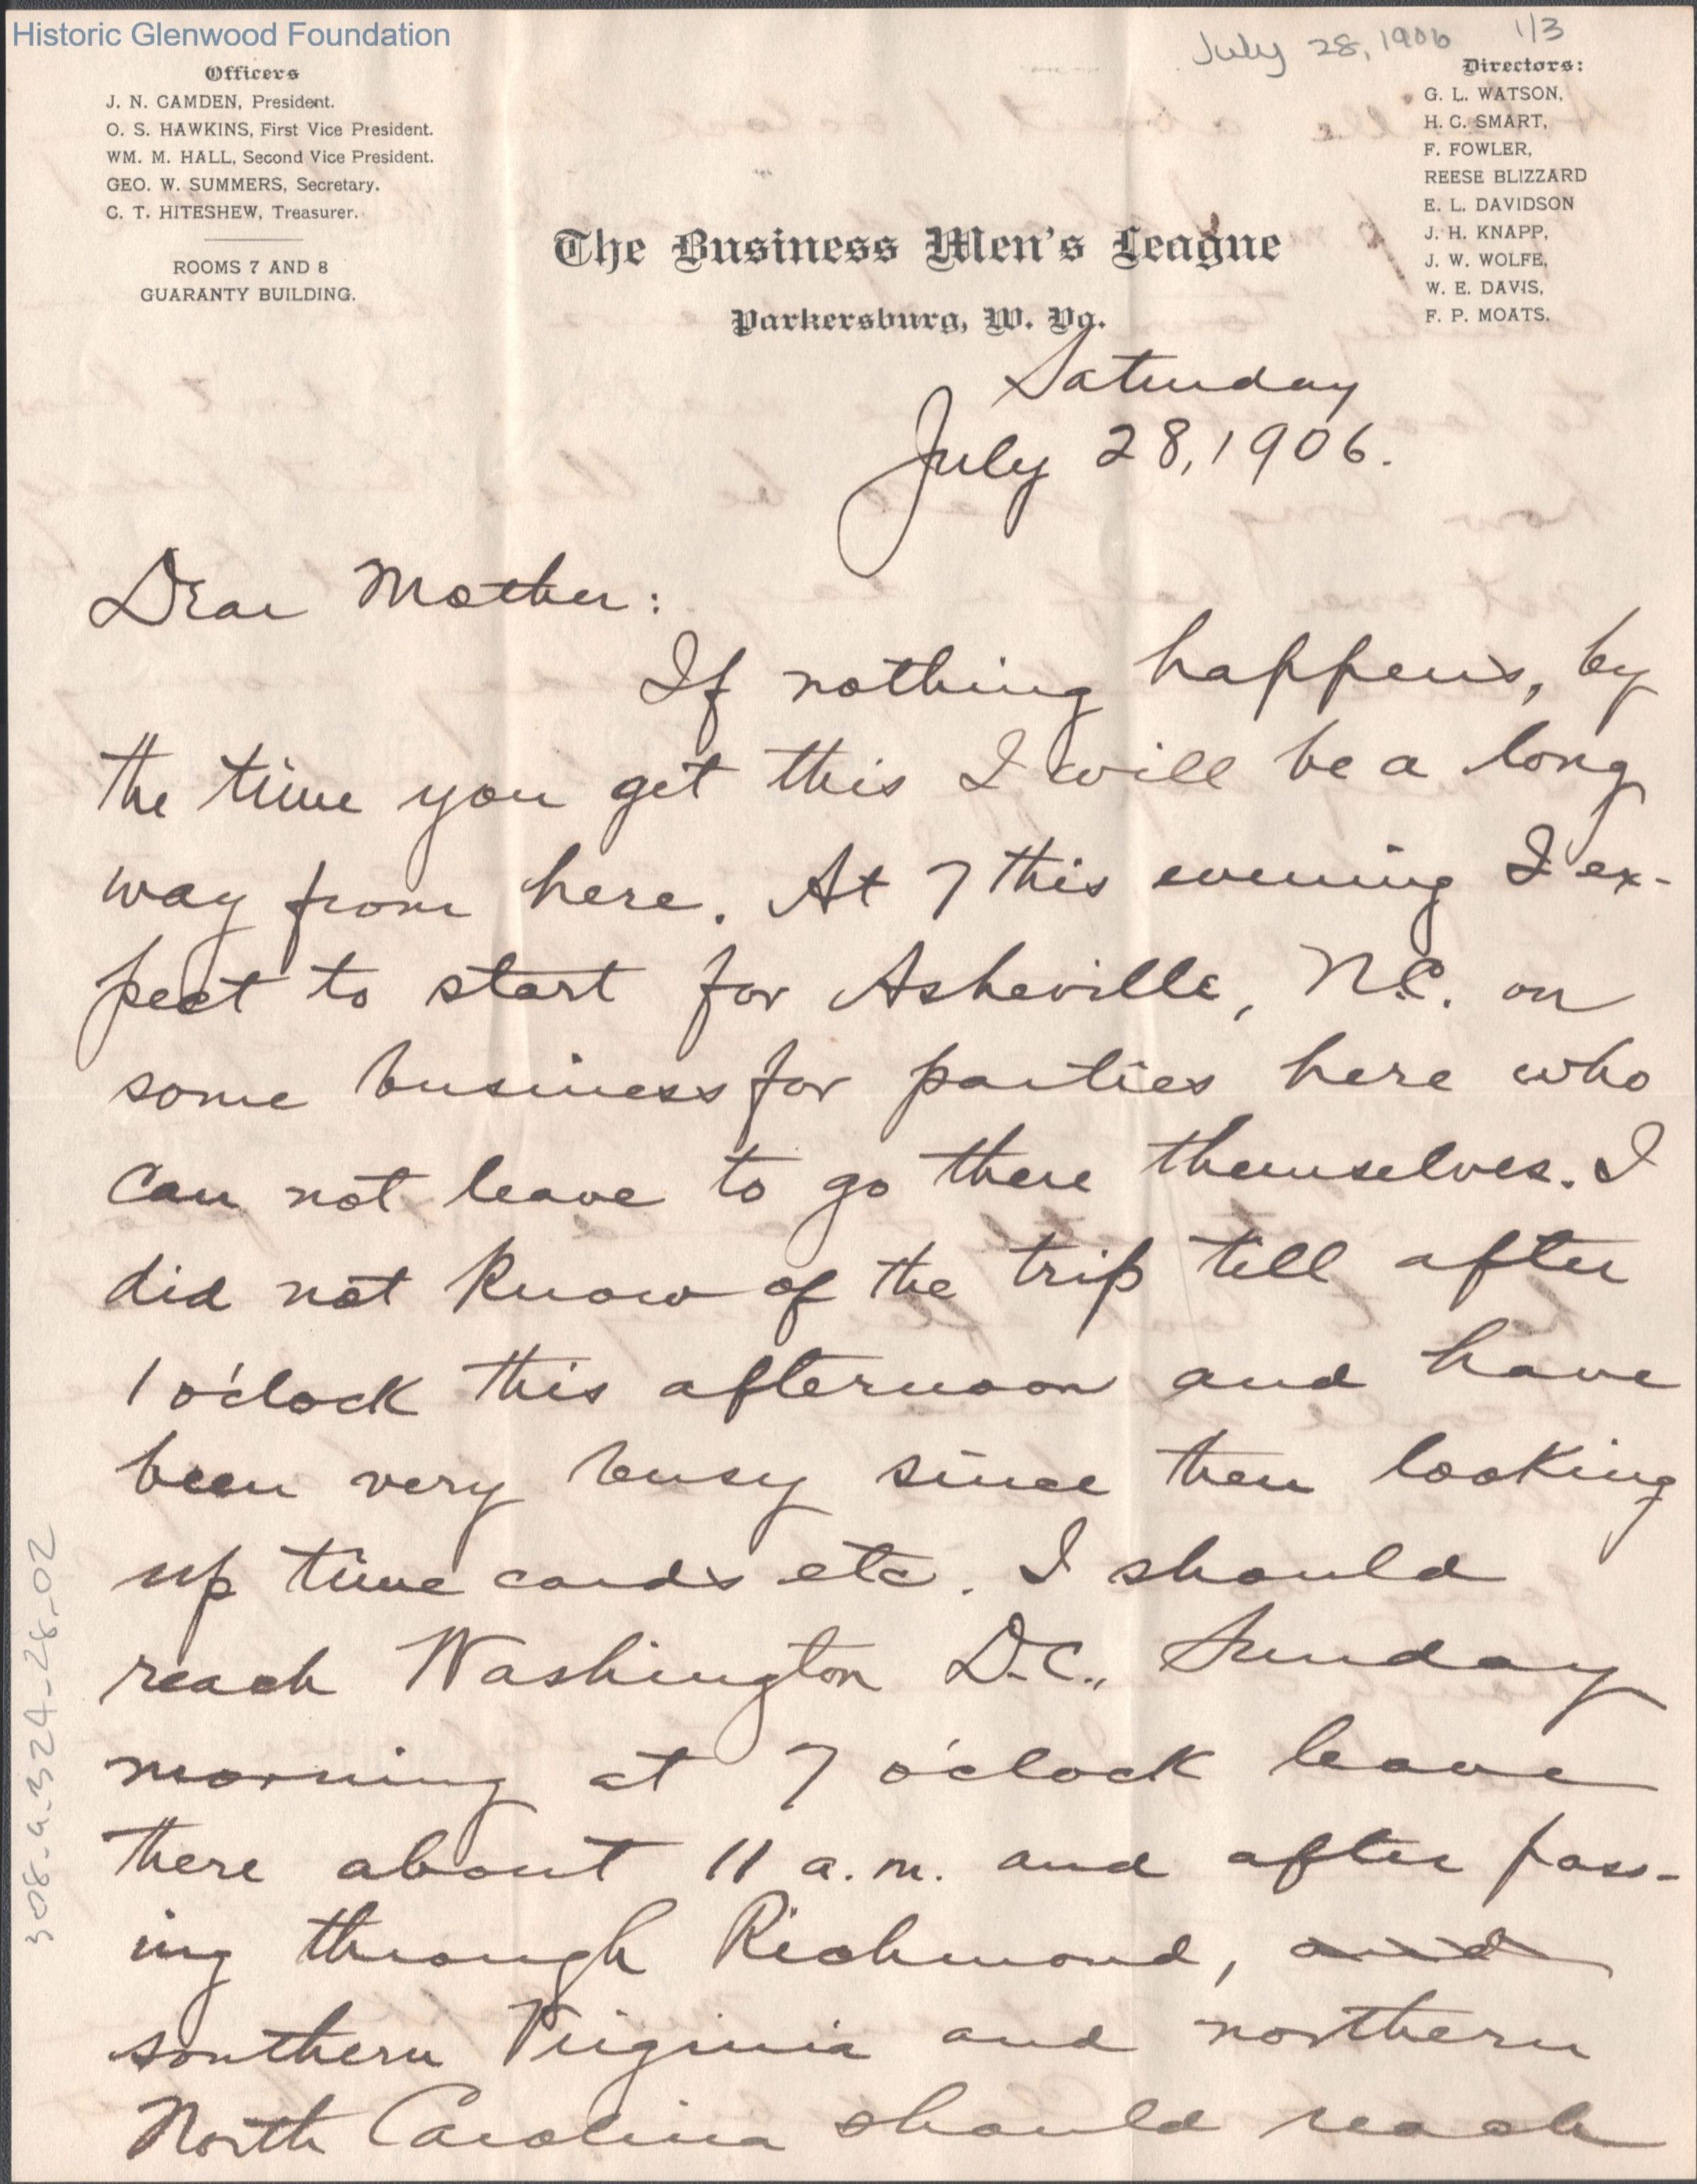 Historic Glenwood Foundation
July 28, 1906 1/3
Officers
J. N. CAMDEN, President.
O. S. HAWKINS, First Vice President.
WM. M. HALL, Second Vice President.
GEO. W. SUMMERS, Secretary.
C. T. HITESHEW, Treasurer.
ROOMS 7 AND 8
GUARANTY BUILDING.
Directors:
G. L. WATSON,
H. C. SMART,
F. FOWLER,
REESE BLIZZARD
E. L. DAVIDSON
J. H. KNAPP,
J. W. WOLFE,
W. E. DAVIS,
F. P. MOATS.
The Business Men's League
Parkersburg, W. Va.
Saturday
July 28, 1906.
Dear Mother:
If nothing happens, by
the time you get this I will be a long
way from here. At 7 this evening I ex-
pect to start for Asheville, N.C. on
some business for parties here who
can not leave to go there themselves. I
did not know of the trip till after
1 o'clock this afternoon and have
been very busy since then looking
up time cards etc. I should
reach Washington D.C., Sunday
morning at 7 o'clock leave
there about 11 a.m. and after pass-
ing through Richmond, and
southern Virginia and northern
North Carolina should reach
308-a-324-28-02